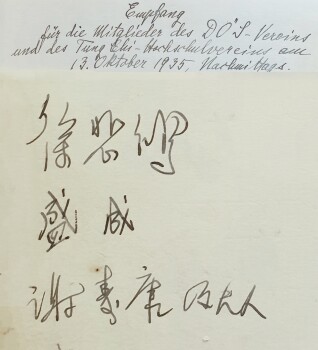 Empfang
für die Mitglieder des DOS-Vereins
und des Tung Chi-Hochschulvereins am
13. Oktober 1935, Nachmittags.
徐悲鴻
盛成
謝壽康及夫人